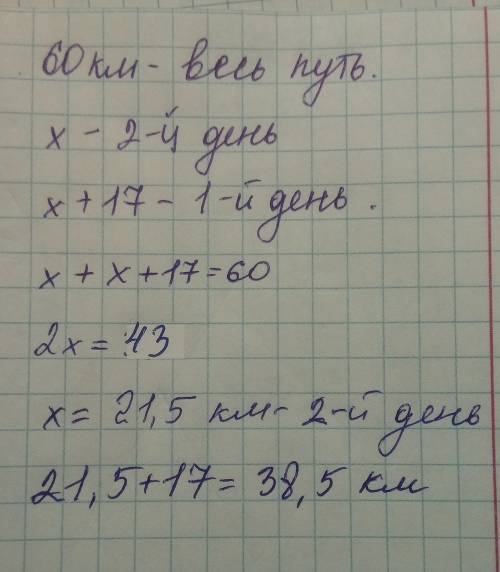 60км - весь путь.
х - 2-й день
х + 17 - 1-й день.
х + х + 17 = 60
2х = 43
х = 21,5 км - 2-й день
21,5 + 17 = 38,5 км